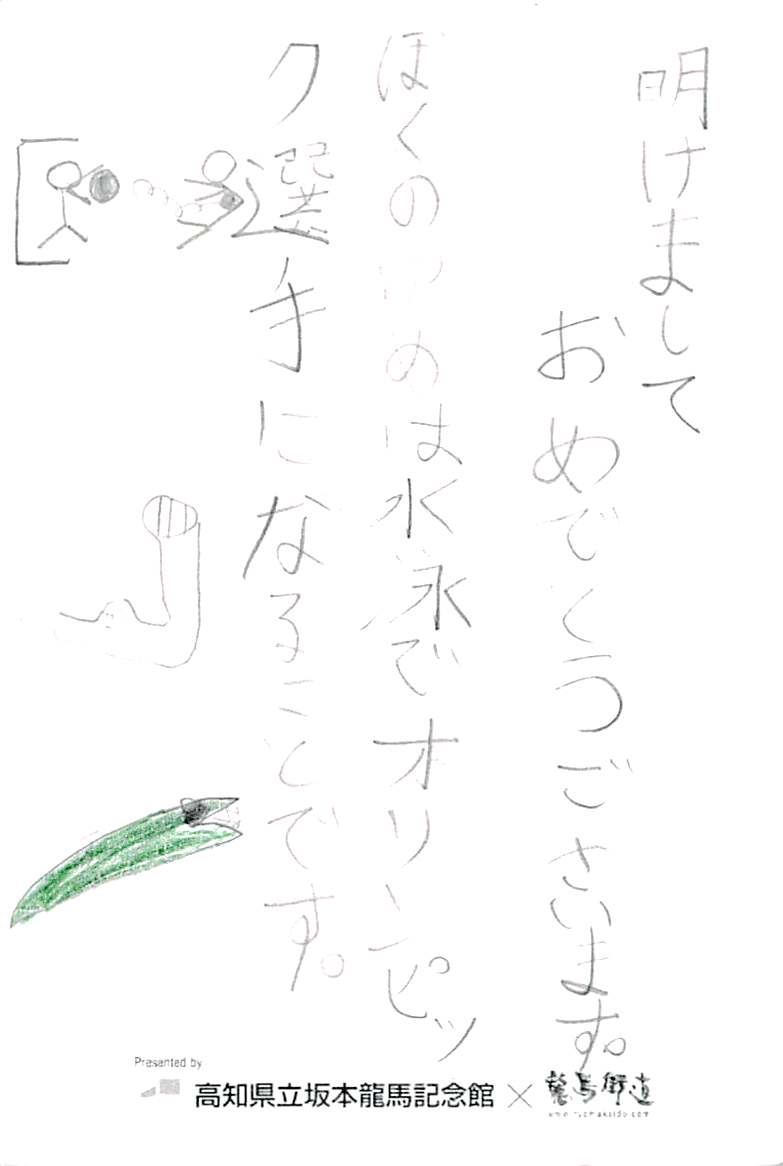 明けまして
おめでとうございます。
ぼくのゆめは水泳でオリンピッ
ク選手になることです。
Presented by
高知県立坂本龍馬記念館×龍馬街道
www.ryomakaido.com